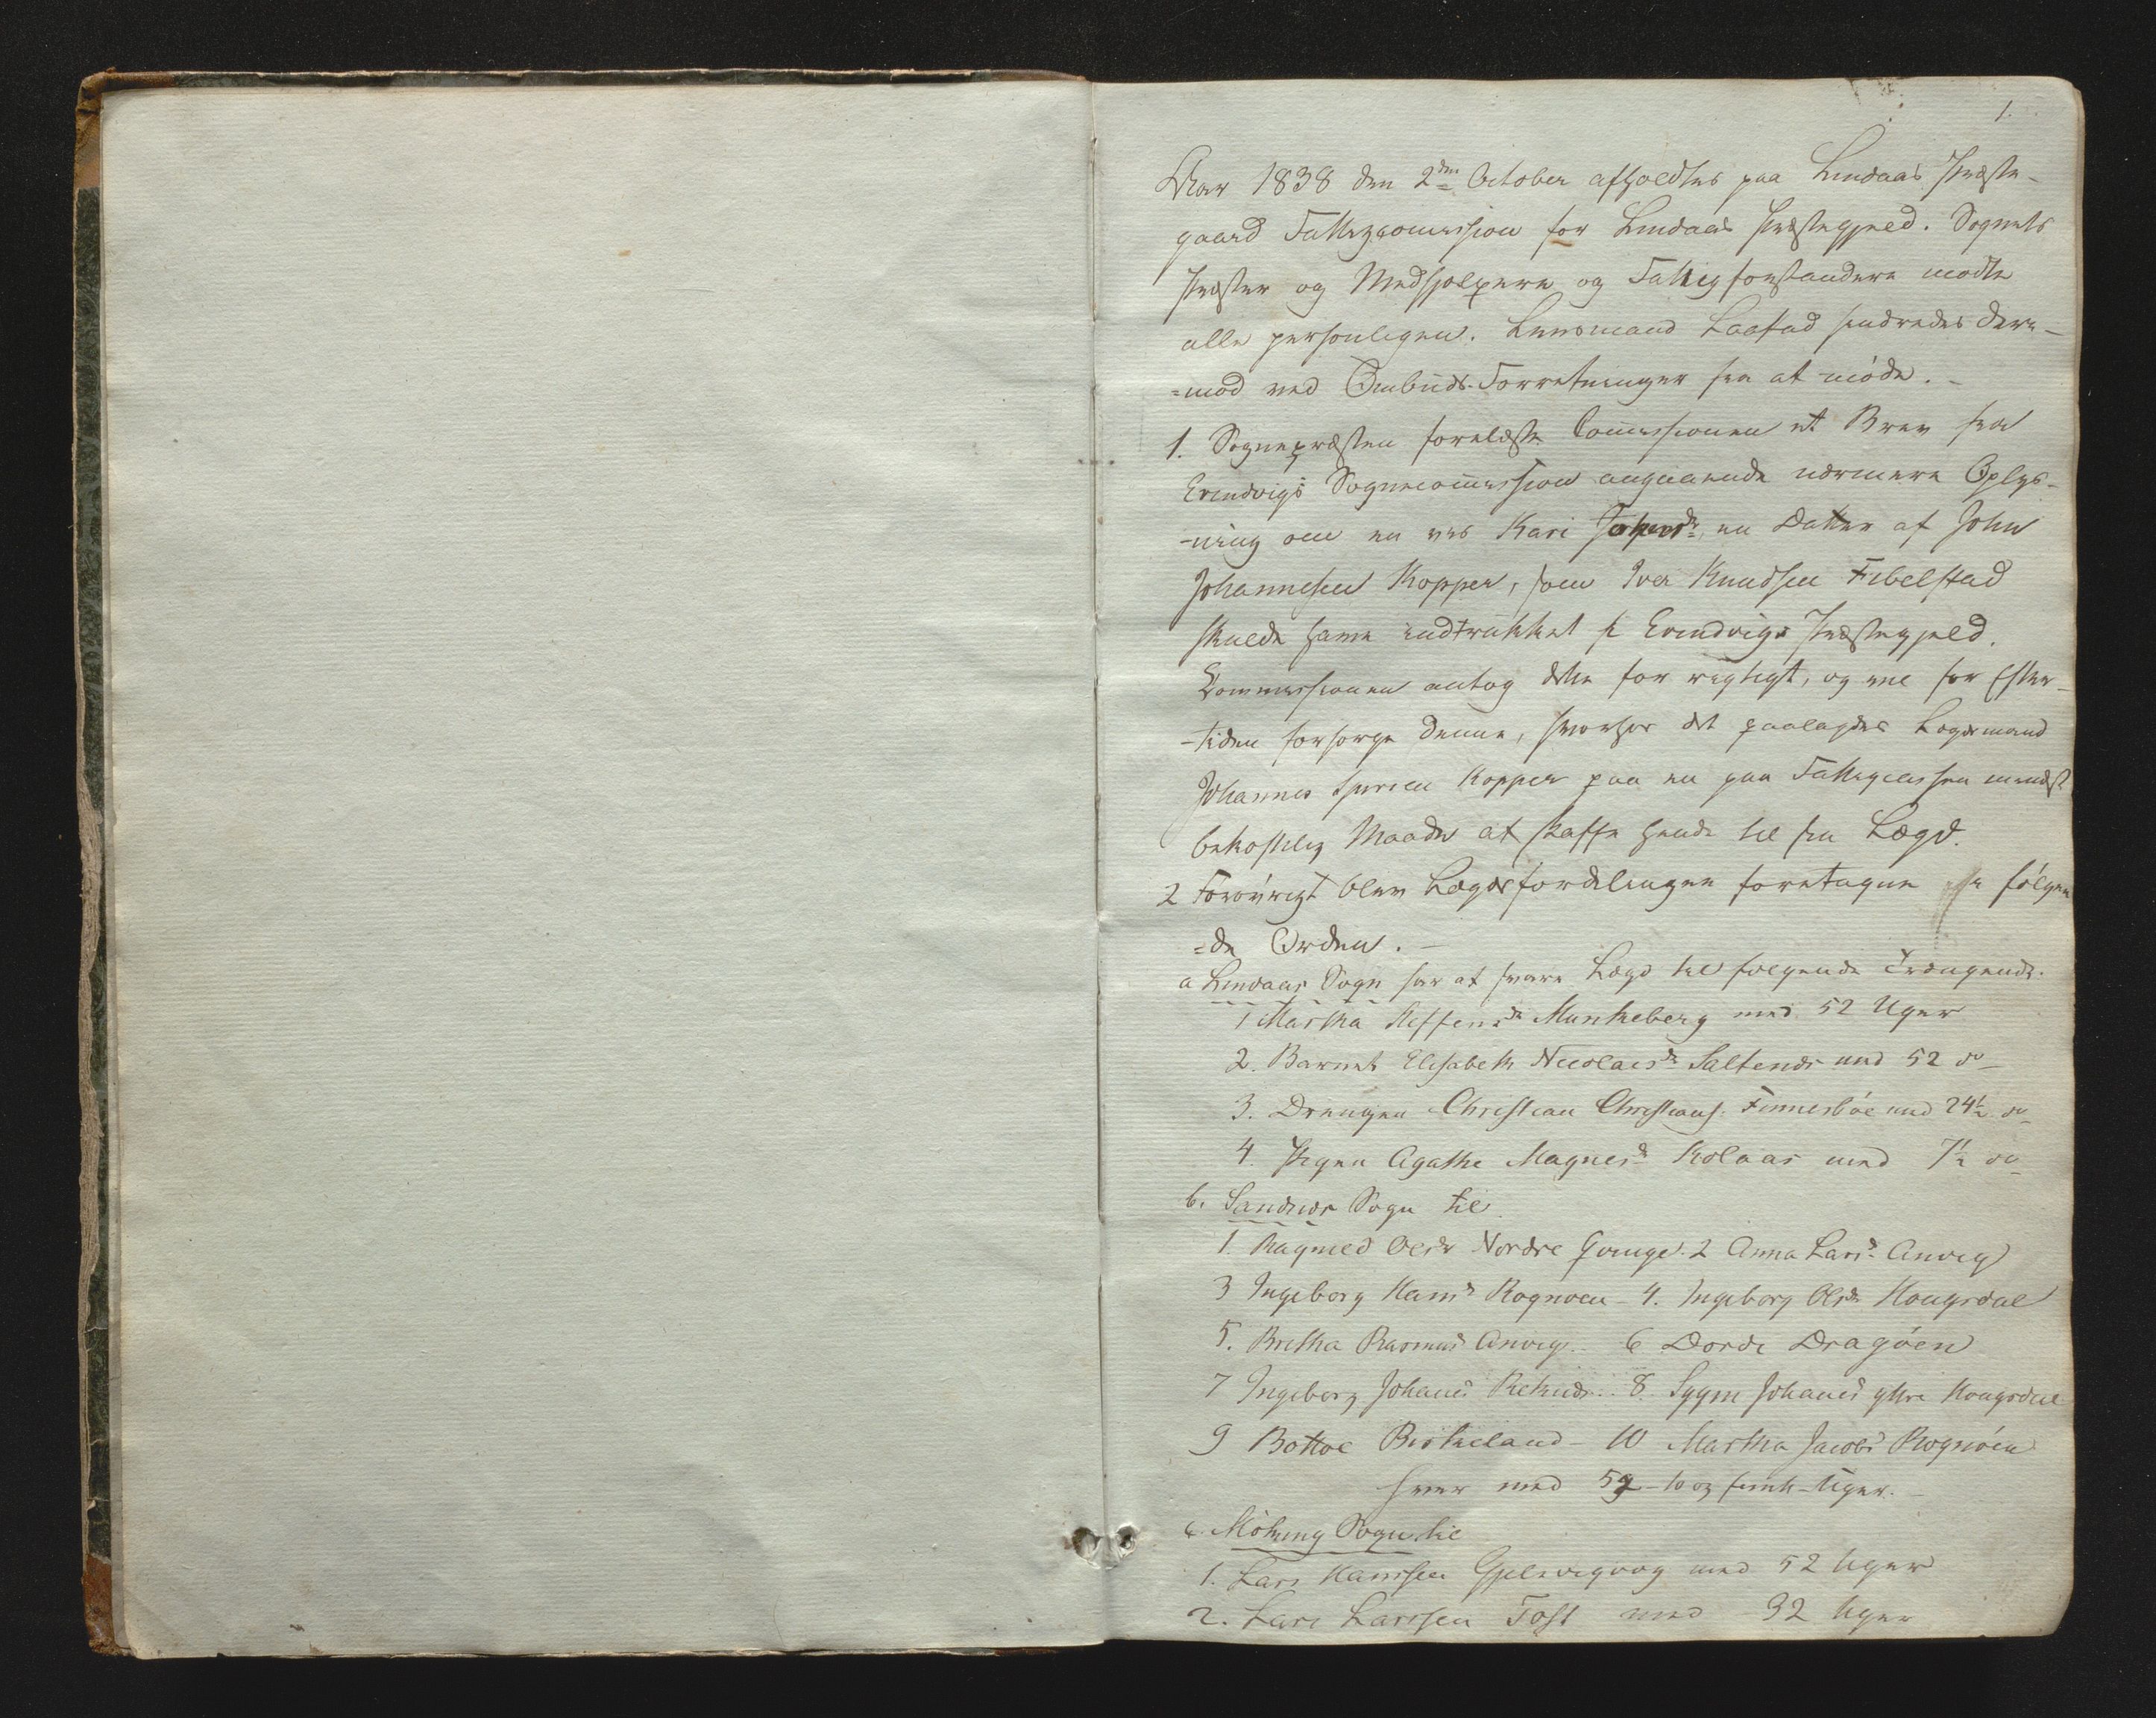 1.
Aar 1838 den 2den October afholdtes paa Lindaas Præste-
gaard Fattigcommission for Lindaas Præstegjeld. Sognets
Præster og Medhjelpere og Fattigforstandere mødte
alle personligen. Lensmand hindredes dere-
=mod ved Embeds-Forretninger fra at møde.
1. Sognepræsten forelæste Commissionen et Brev fra
Evindvigs Sognecommission angaaende nærmere Oplys-
-ning om en vis Kari en Datter af John
Johannesen Kopper, som Iver Knudsen Fibelstad
skulde have indtrukket fr Evindvigs Præstegjeld.
Commissionen antog dette for rigtigt, og vil for Efter-
-tiden forsørge denne, hvorfor det paalagdes Lægdsmand
Johannes Kopper paa en paa Fattigcassen mindst
bekostelig Maade at skaffe hende til sin Lægd.
2 Forøvrigt blev Lægdsfordelingen foretagen i følgen
=de Orden. -
a Lindaas Sogn har at svare Lægd til følgende Trængende.
1 Martha Steffensdr Munkeberg med 52 Uger
2. Barnet Elisabeth Nicolaisdr Saltende med 52 do
3. Drengen Christian Christians. Fennesbøe med 24½ do
4. Pigen Agathe Magnesdr Kolaas med 7½ do
b. Sandnæs Sogn til
1. Ragnild Olsdr Nordre Qvinge. 2 Anna Larsdr Anvig
3 Ingeborg Hansdr Rognøen - 4. Ingeborg Olsdr Kongsdal
5. Bretha Rasmusdr Anvig - 6 Dorde Dragøen
7 Ingeborg Johansdr 8. Johansdr ytre Kongsdal
9 Birkeland - 10 Martha Jacobsdr Rognøen
hver med 52 - to og femti - Uger. -
c. Møkring Sogn til
1. Lars Hanssen Gjelvigvog med 52 Uger
2. Lars Larssen Toft med 32 Uger